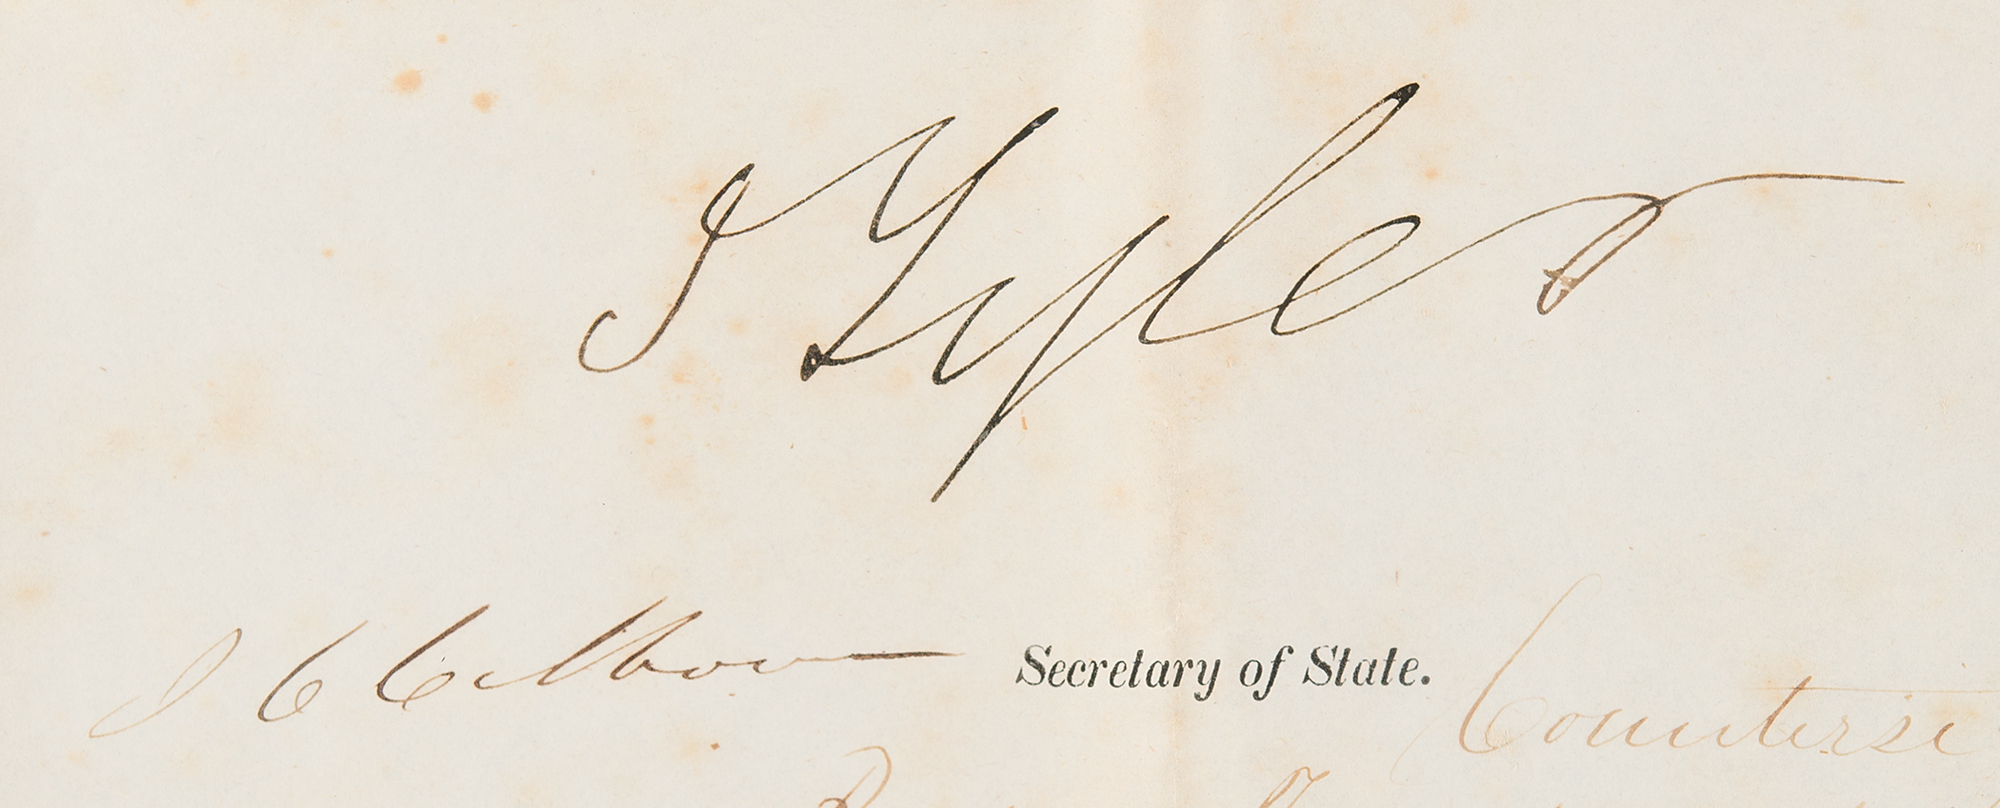 J Tyler
J C Calhoun Secretary of State.
Countersi